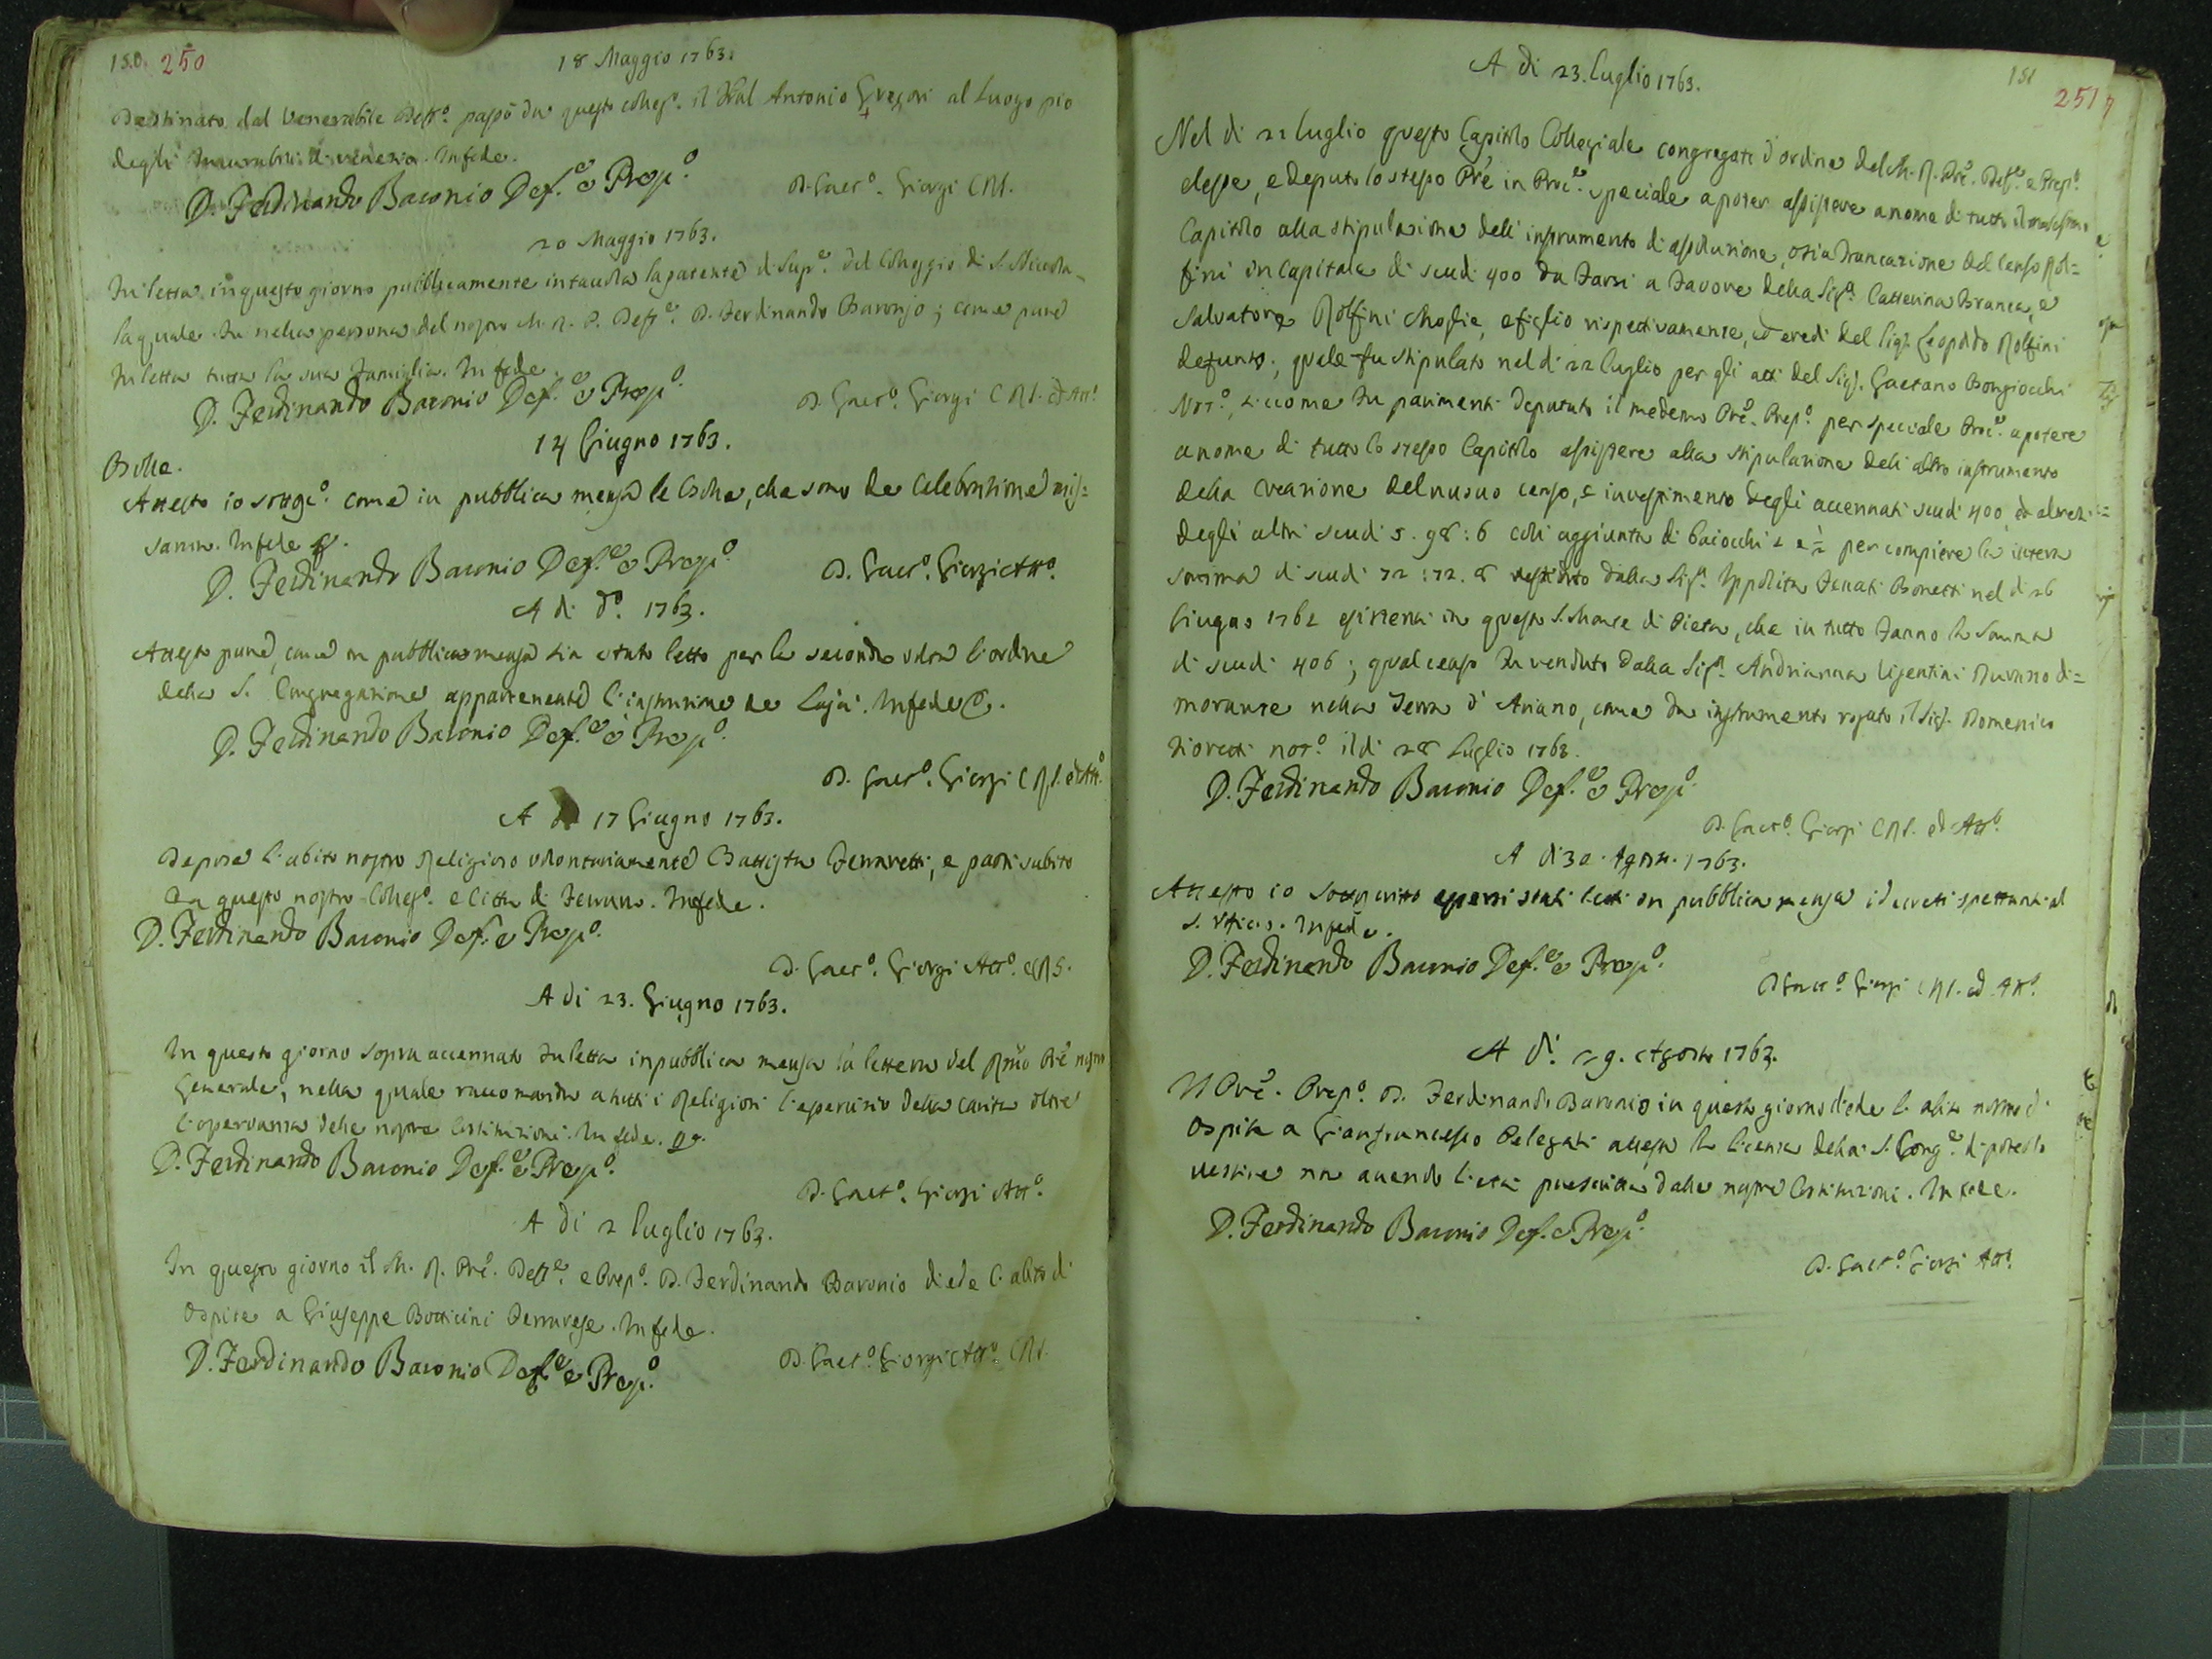 150. 250
18 Maggio 1763.
Destinato dal Venerabile Deff.o passò da questo colleg.o il Antonio Gregori al Luogo pio
degli Incurabili di Venezia. In fede.
D. Ferdinando Baronio Def.e e Prep.o
D. Gaet.o Giorgi CRS.
20 Maggio 1763.
Fu letta in questo giorno pubblicamente in tavola la patente di Sup.e del Colleggio di S. Niccola
la quale fu nella persona del nostro M. R. P. Deff.e D. Ferdinando Baronio; come pure
fu letta tutta la sua famiglia. In fede.
D. Ferdinando Baronio Def.e e Prep.o
D. Gaet.o Giorgi CRS. ed Att.o
14 Giugno 1763.
Bolle.
Attesto io sottos.o come in pubblica mensa le Bolle, che sono de Celebratione mis=
sarum. In fede
D. Ferdinando Baronio Def.e e Prep.o
D. Gaet.o Giorgi Att.o
A di d.o 1763.
Attesto pure, come in pubblica mensa sia stato letto per la seconda volta l'ordine
della S. Congregazione appartenente l'istruzione de Laici. In fede
D. Ferdinando Baronio Def.e e Prep.o
D. Gaet.o Giorgi CRS. ed Att.o
A di 17 Giugno 1763.
Depose l'abito nostro Religioso volontariamente Battista Ferraretti, e partì subito
da questo nostro Colleg.o e Città di Ferrara. In fede.
D. Ferdinando Baronio Def.e e Prep.o
D. Gaet.o Giorgi Att.o CRS.
A di 23. Giugno 1763.
In questo giorno sopra accennato fu letta in pubblica mensa la lettera del Rmo Pre nostro
Generale, nella quale raccomanda a tutti i Religiosi l'esercizio della carità oltre
l'osservanza delle nostre Costituzioni. In fede.
D. Ferdinando Baronio Def.e e Prep.o
D. Gaet.o Giorgi Att.o
A di 2 luglio 1763.
In questo giorno il M. R. Pre. Deff.e e Prep.o D. Ferdinando Baronio diede l'abito di
Ospite a Giuseppe Botticini Ferrarese. In fede.
D. Ferdinando Baronio Def.e e Prep.o
D. Gaet.o Giorgi Att.o CRS.
A di 23. luglio 1763.
151
251
Nel di 21 luglio questo Capitolo Collegiale congregato d'ordine del M. R. Pre. Deff.e e Prep.o
elesse, e deputò lo stesso Pre in Proc.e speciale a poter assistere a nome di tutto il medesimo
Capitolo alla stipulazione dell'instrumento di assoluzione, osia francazione del Censo Rol=
fini in Capitale di scudi 400 da farsi a favore della Sig.a Catterina Branca, e
Salvatore Rolfini Moglie, e figlio rispettivamente, ed eredi del Sig. Leopoldo Rolfini
defunto; quale fu stipulato nel di 22 luglio per gli atti del Sig. Gaetano Bongiocchi
Not.o, siccome fu parimenti deputato il medemo Pre. Prep.o per speciale Proc.e a potere
a nome di tutto lo stesso Capitolo assistere alla stipulazione dell'altro instrumento
della creazione del nuovo censo, e investimento degli accennati scudi 400,
degli altri scudi 5. 98 : 6 coll'aggiunta di baiocchi 1 e ½ per compiere la intera
somma di scudi 72 : 72. 8 dalla Sig.a Ippolita Fenati Bonetti nel di 26
Giugno 1762 esistenti in questo S. Monte di Pietà, che in tutto fanno la somma
di scudi 406; qual censo fu venduto dalla Sig.a Andrianna Ligentini di=
morante nella Terra d'Ariano, come da instrumento rogato il Sig. Domenico
Fioretti not.o il di 28 Luglio 1763.
D. Ferdinando Baronio Def.e e Prep.o
D. Gaet.o Giorgi CRS. ed Att.o
A di 30. Agosto. 1763.
Attesto io sottoscritto essersi stati letti in pubblica mensa i decreti spettanti al
S. Officio. In fede.
D. Ferdinando Baronio Def.e e Prep.o
D Gaet.o Giorgi CRS. ed Att.o
A di. 29. Agosto 1763.
Il Pre. Prep.o D. Ferdinando Baronio in questo giorno diede l'abito nostro di
Ospite a Gianfrancesco Pelegati attesa la licenza della S. Cong.e di poterlo
vestire non avendo l'età prescritta dalle nostre Costituzioni. In fede.
D. Ferdinando Baronio Def. e Prep.o
D. Gaet.o Giorgi Att.o